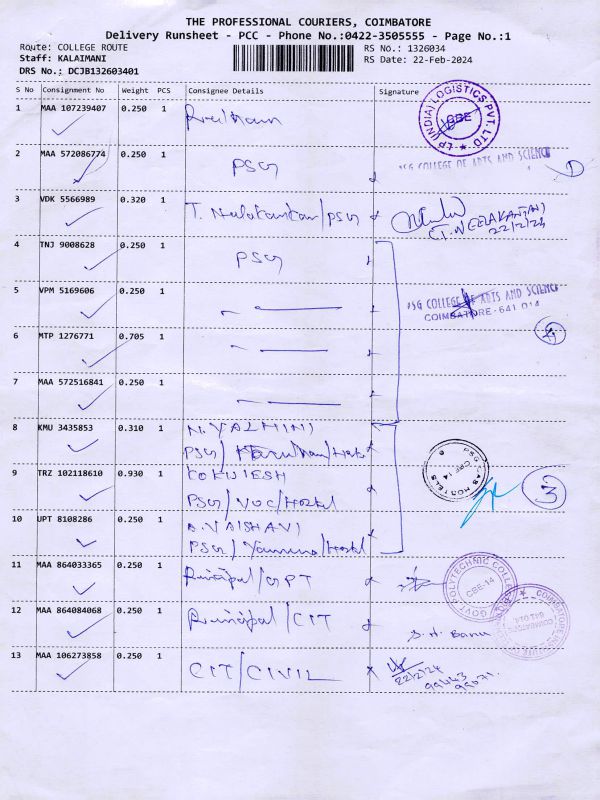 THE PROFESSIONAL COURIERS, COIMBATORE
Delivery Runsheet - PCC - Phone No.:0422-3505555 - Page No.:1
Route: COLLEGE ROUTE
RS No.: 1326034
Staff: KALAIMANI
RS Date: 22-Feb-2024
DRS No.: DCJB132603401
S No Consignment No Weight PCS Consignee Details Signature
1 MAA 107239407 0.250 1
LP (INDIA) LOGISTICS PVT. LTD
CBE
2 MAA 572086774 0.250 1 PSG
PSG COLLEGE OF ARTS AND SCIENCE
1
3 VDK 5566989 0.320 1 T. Neelakantan/PSG
(T. NEELAKANTAN)
22/2/24
4 TNJ 9008628 0.250 1 PSG
5 VPM 5169606 0.250 1
PSG COLLEGE OF ARTS AND SCIENCE
COIMBATORE - 641 014
4
6 MTP 1276771 0.705 1
7 MAA 572516841 0.250 1
8 KMU 3435853 0.310 1 N. YALHINI
PSG/ /Hostel
9 TRZ 102118610 0.930 1 GOKULESH
PSG/VOC/Hostel
PSG CAS HOSTELS
CBE 14
3
10 UPT 8108286 0.250 1 A. VAISHAVI
PSG/Yamuna/Hostel
11 MAA 864033365 0.250 1 Principal/GPT
GOVT POLYTECHNIC COLLEGE
CBE-14
12 MAA 864084068 0.250 1 Principal/CIT
S. H. Banu
COIMBATORE
641 014
13 MAA 106273858 0.250 1 CIT/CIVIL
22/2/24
99443
99071